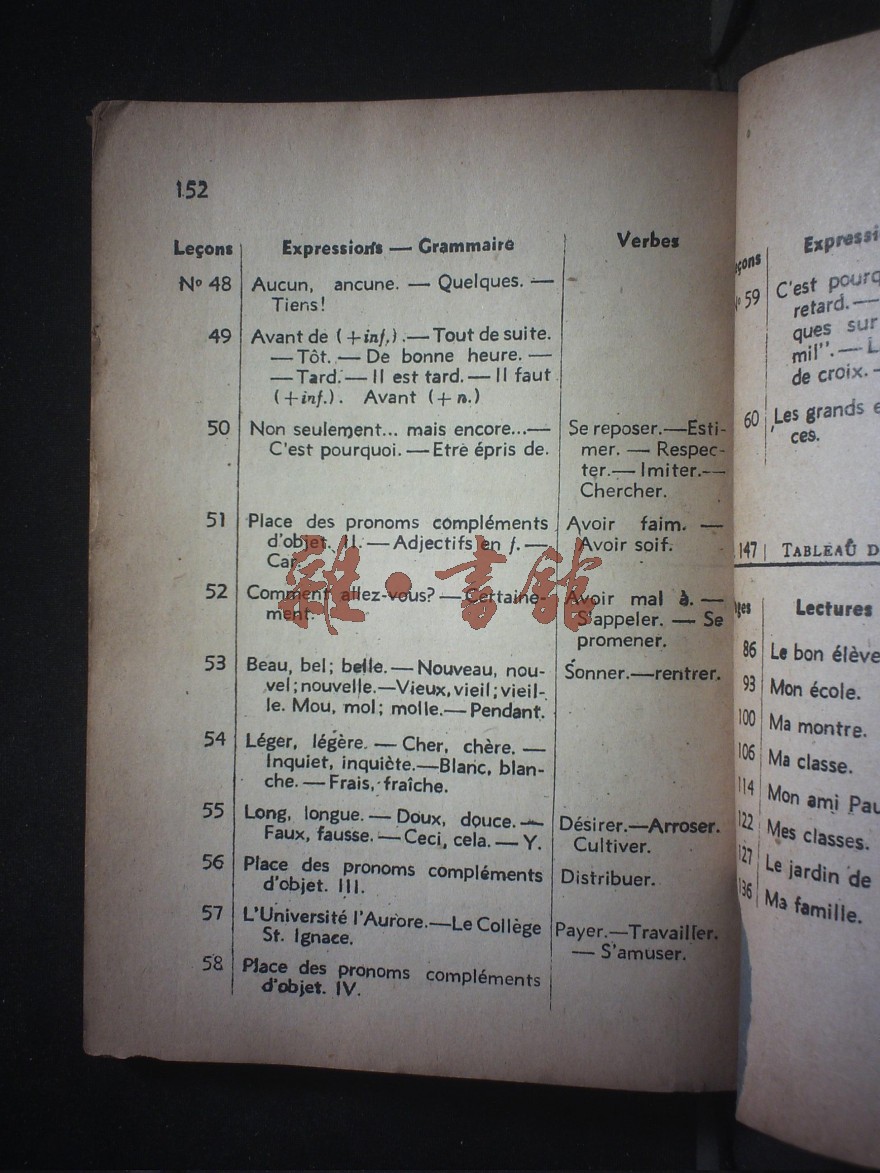 152
Leçons Expressions — Grammaire Verbes
Nº 48 Aucun, ancune. — Quelques. —
Tiens!
49 Avant de (+inf.).— Tout de suite.
— Tôt. — De bonne heure. —
— Tard. — Il est tard. — Il faut
(+inf.). Avant (+n.)
50 Non seulement... mais encore...— Se reposer.—Esti-
C'est pourquoi. — Etre épris de. mer. — Respec-
ter.— Imiter.—
Chercher.
51 Place des pronoms compléments Avoir faim. —
d'objet. II. — Adjectifs en f. — Avoir soif.
Car.
52 Comment allez-vous? — Certaine- Avoir mal à. —
ment. S'appeler. — Se
promener.
53 Beau, bel; belle. — Nouveau, nou- Sonner.—rentrer.
vel; nouvelle.—Vieux, vieil; vieil-
le. Mou, mol; molle.— Pendant.
54 Léger, légère. — Cher, chère. —
Inquiet, inquiète.—Blanc, blan-
che. — Frais, fraîche.
55 Long, longue. — Doux, douce. — Désirer.—Arroser.
Faux, fausse. — Ceci, cela. — Y. Cultiver.
56 Place des pronoms compléments Distribuer.
d'objet. III.
57 L'Université l'Aurore.—Le Collège Payer.—Travailler.
St. Ignace. — S'amuser.
58 Place des pronoms compléments
d'objet. IV.
雜·書館
çons Expressi
º 59 C'est pourq
retard.—
ques sur
mil".— L
de croix. -
60 Les grands e
ces.
147 TABLEAU D
ges Lectures
86 Le bon élève
93 Mon école.
100 Ma montre.
106 Ma classe.
114 Mon ami Pau
122 Mes classes.
127 Le jardin de
136 Ma famille.